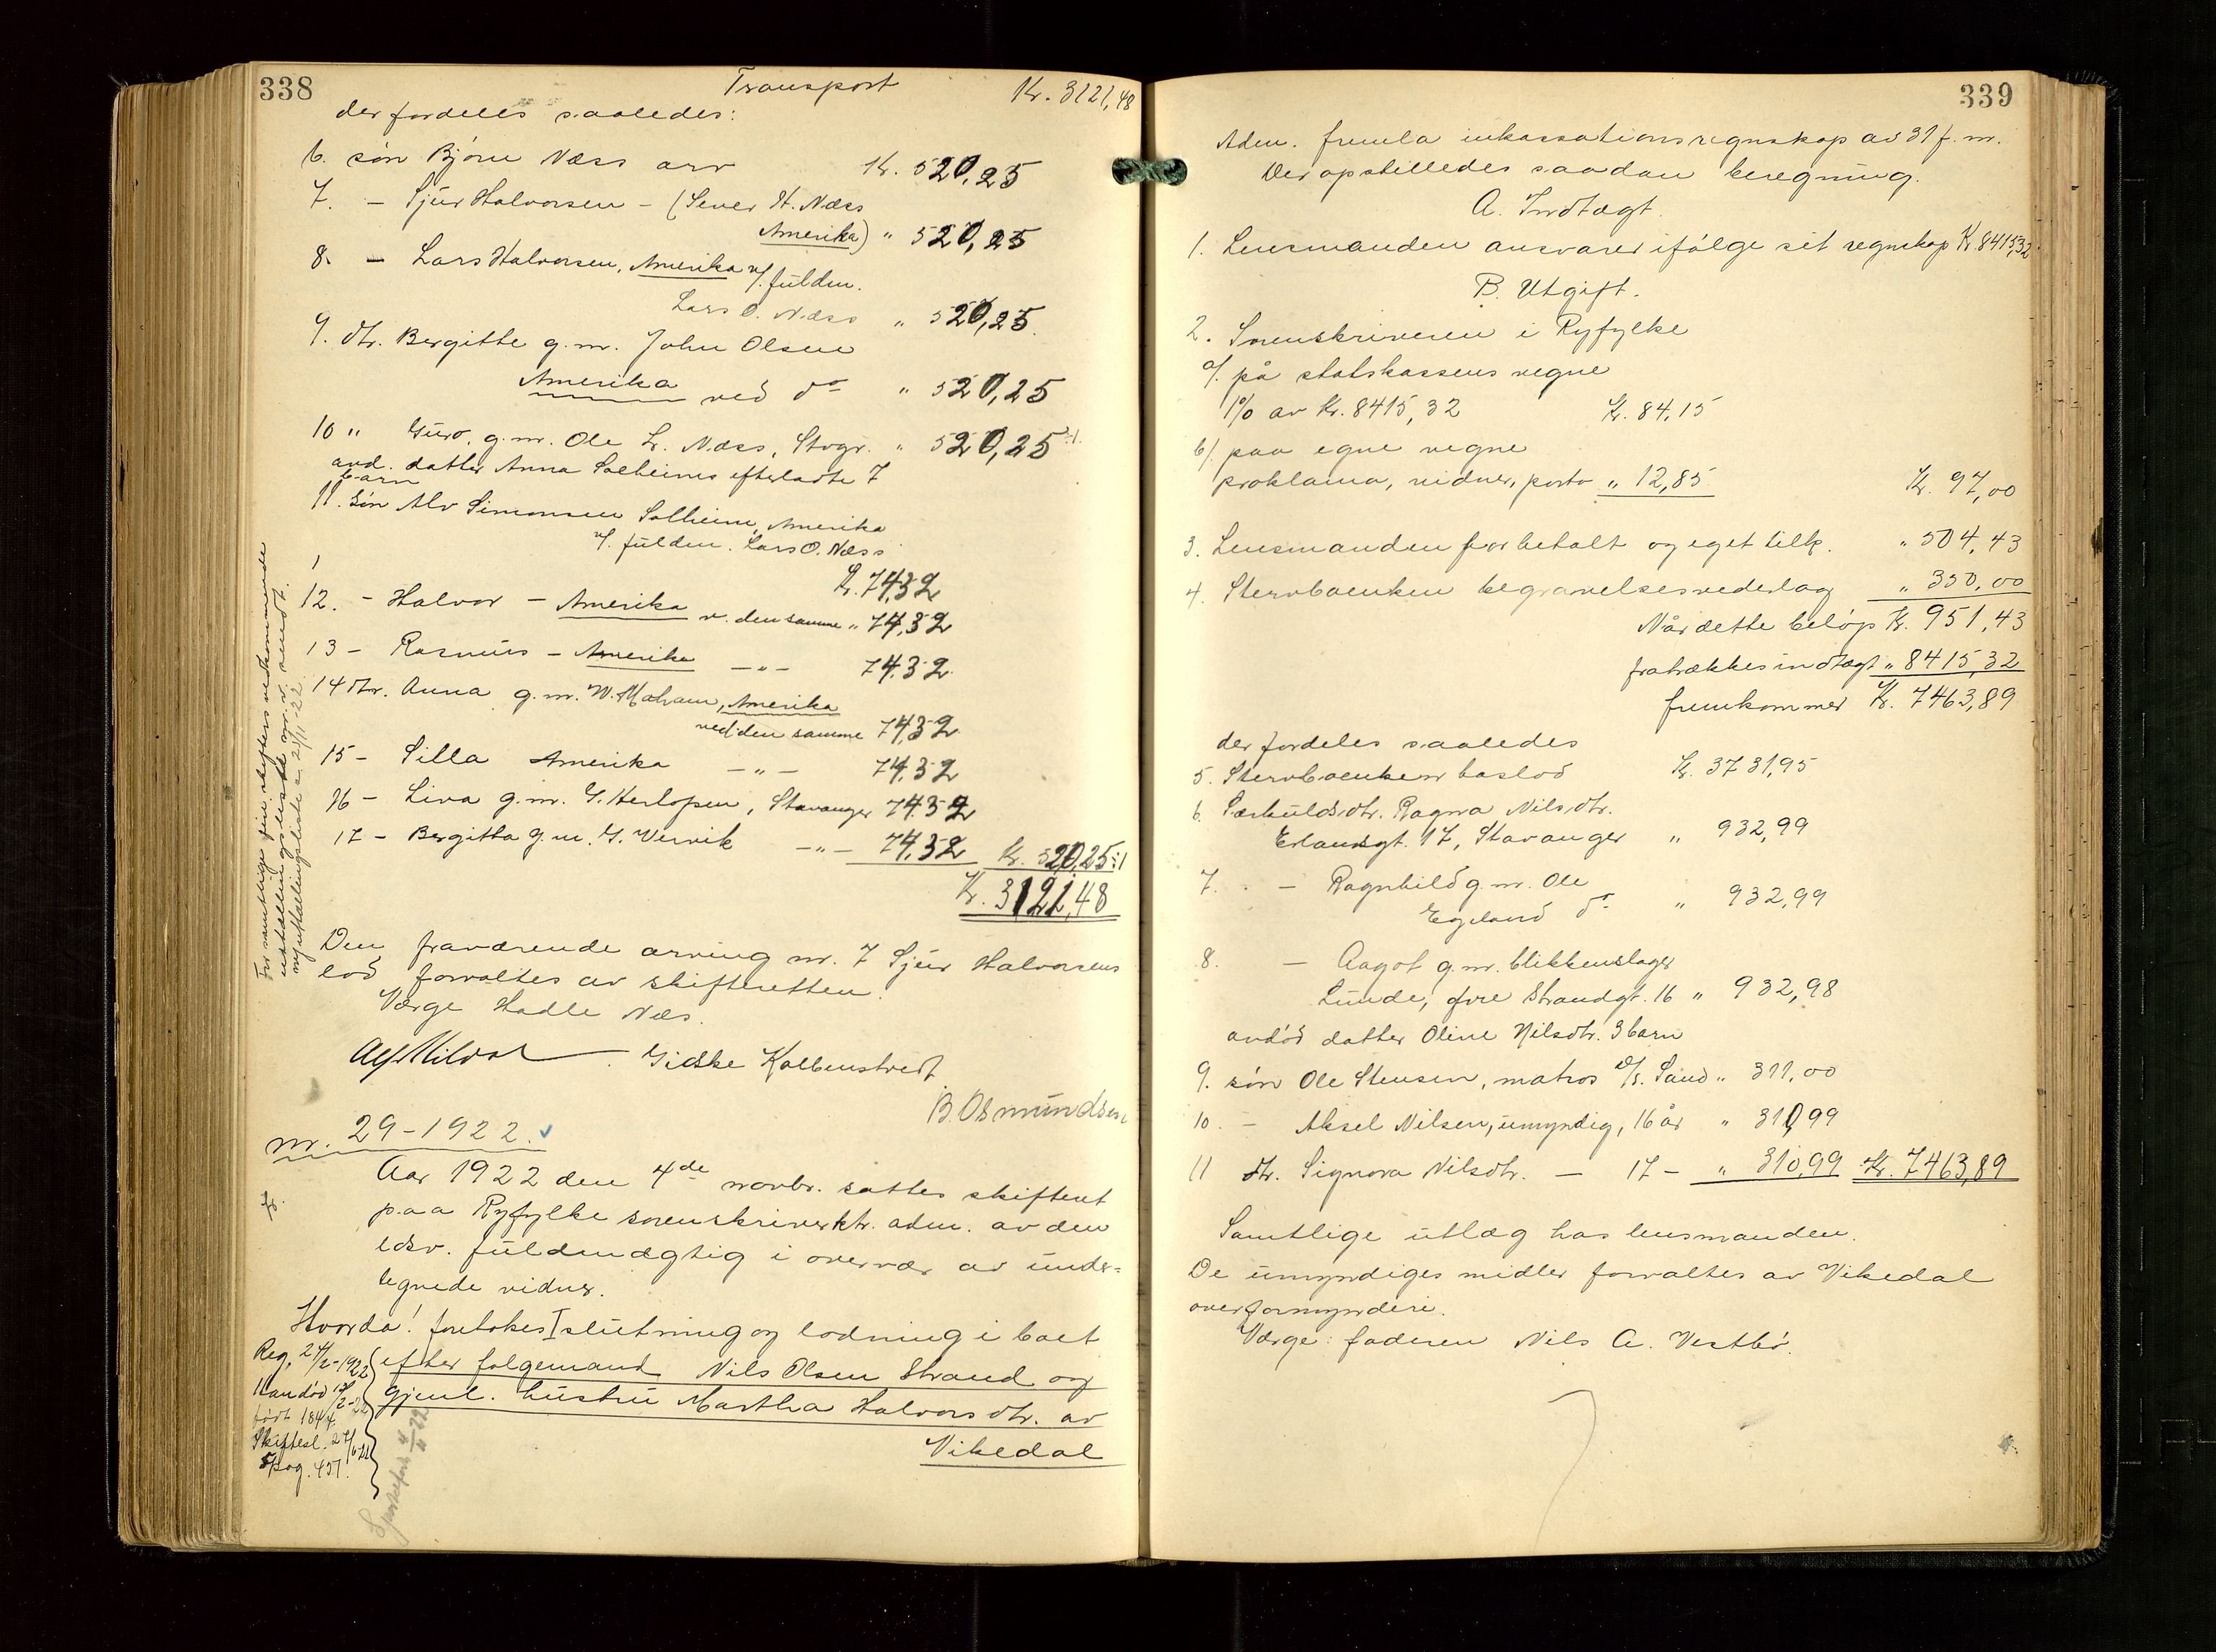 338
Transport Kr. 3121,48
der fordeles saaledes:
6. søn Bjørn Næss arv Kr. 520,25
7. - Sjur Halvorsen - (Sever H. Næss
Amerika) " 520,25
8. - Lars Halvorsen, Amerika v/. fuldm.
Lars O. Næss " 520,25
9. dtr. Bergitte g.m. John Olsen
Amerika ved do " 520,25
10 " Guro, g.m. Ole L. Næss, Stvgr. " 520,25 ÷1
avd. datter Anna Solheims efterladte 7
barn
11. søn Alv Simonsen Solheim, Amerika
v/. fuldm. Lars O. Næss
Kr. 74,32
12. - Halvor - Amerika v. den samme " 74,32
13 - Rasmus - Amerika - " - 74,32
14 dtr. Anna g.m. W. Maham, Amerika
ved den samme 74,32
15 - Silla Amerika - " - 74,32
16 - Liva g.m. G. Herlofsen, Stavanger 74,32
17 - Bergitta g.m. G. Vervik - " - 74,32 Kr. 520,25 ÷1
Kr. 3121,48
For samtlige fire skiftets vedkommende
utdællingsliste nr. v. sendt.
ny utdællingsliste s. 21/11-22
Den fraværende arving nr. 7 Sjur Halvorsens
lod forvaltes av skifteretten.
Værge Hadle Næs.
Alf Mildal Gidske Kolbenstvedt
B. Osmundsen
nr. 29-1922.
Aar 1922 den 4de novbr. sattes skifteret
paa Ryfylke sorenskriverktr. adm. av den
edsv. fuldmægtig i overvær av under-
tegnede vidner.
Hvorda! foretokes slutning og lodning i boet
efter folgemand Nils Olsen Strand og
gjenl. hustru Martha Halvorsdtr. av
Vikedal
Reg. 24/2-1922
Han død 12/2-22
født 1844.
Skiftesl. 24/6-22
Pag. 451.
339
Adm. fremla inkassationsregnskap av 31 f.m.
Der opstilledes saadan beregning.
A. Indtægt.
1. Lensmanden ansvarer ifølge sit regnskap Kr. 8415,32.
B. Utgift.
2. Sorenskriveren i Ryfylke
a/. på statskassens vegne
1% av Kr. 8415,32 Kr. 84,15
b/. paa egne vegne
proklama, vidner, porto " 12,85 Kr. 97,00
3. Lensmanden for betalt og eget tilk. " 504,43
4. Stervboenken begravelsesvederlag " 350,00
Når dette beløp Kr. 951,43
fratrækkes indtægt " 8415,32
fremkommer Kr. 7463,89
der fordeles saaledes
5. Stervboenkens boslod Kr. 3731,95
6. Særkuldsdtr. Ragna Nilsdtr.
Erlandsgt. 17, Stavanger " 932,99
7. - Ragnhild g.m. Ole
Egeland do " 932,99
8. - Aagot g.m. blikkenslager
Lunde, øvre Strandgt. 16 " 932,98
avdød datter Oline Nilsdtr. 3 barn
9. søn Ole Stensen, matros D/S. Sand " 311,00
10. - Aksel Nilsen, umyndig, 16 år " 310,99
11 dtr. Signora Nilsdtr. - 17 - " 310,99 Kr. 7463,89
Samtlige utlæg hos lensmanden.
De umyndiges midler forvaltes av Vikedal
overformynderi.
Værge: faderen Nils A. Vestbø.